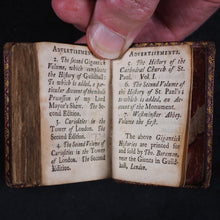 ADVERTISEMENTS.
2. The Second Gigantick
Volume, which compleats
the History of Guildhall;
To which is added, a par-
ticular Account of the
Procession of my Lord
Mayor's Shew. The Se-
cond Edition.
3. Curiosities in the
Tower of London. The
Second Edition.
4. The Second Volume of
Curiosities in the Tower
of London. The Second
Edition.
ADVERTISEMENTS.
5. The History of the
Cathedral Church of St.
Paul. Vol. I.
6. The Second Volume of
the History of St. Paul's:
to which is added, an Ac-
count of the Monument.
7. Westminster Abbey.
Volume the first.
The above Gigantick
Histories are printed for
and sold by Tho. Boreman,
near the Giants in Guildhall,
London.